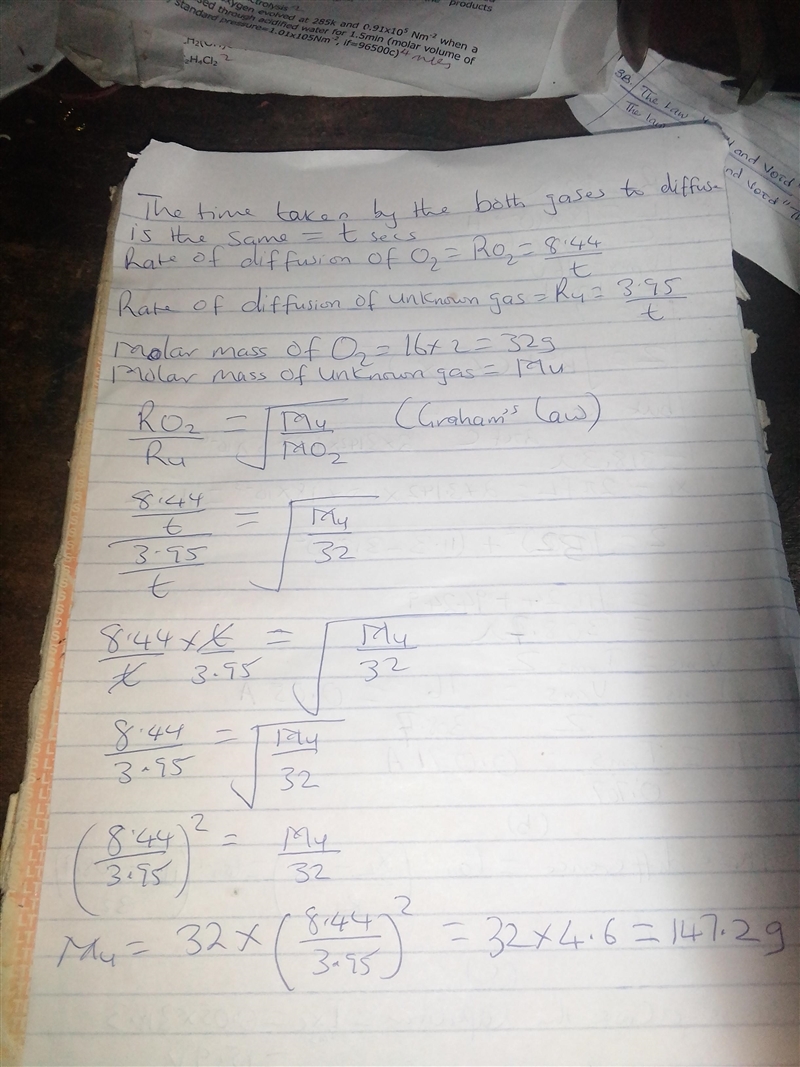 products
oxygen evolved at 285k and 0.91x10⁵ Nm⁻² when a
sed through acidified water for 1.5min (molar volume of
standard pressure=1.01x105Nm⁻², if=96500c)
SB The Law
The law
and Void
nd Void
The time taken by the both gases to diffuse
is the same = t secs
Rate of diffusion of O₂ = RO₂ = 8.44/t
Rate of diffusion of unknown gas = Ru = 3.95/t
Molar mass of O₂ = 16 x 2 = 32g
Molar mass of unknown gas = Mu
RO₂/Ru = √(Mu/MO₂) (Graham's Law)
(8.44/t)/(3.95/t) = √(Mu/32)
8.44/t x t/3.95 = √(Mu/32)
8.44/3.95 = √(Mu/32)
(8.44/3.95)² = Mu/32
Mu = 32 x (8.44/3.95)² = 32 x 4.6 = 147.2g